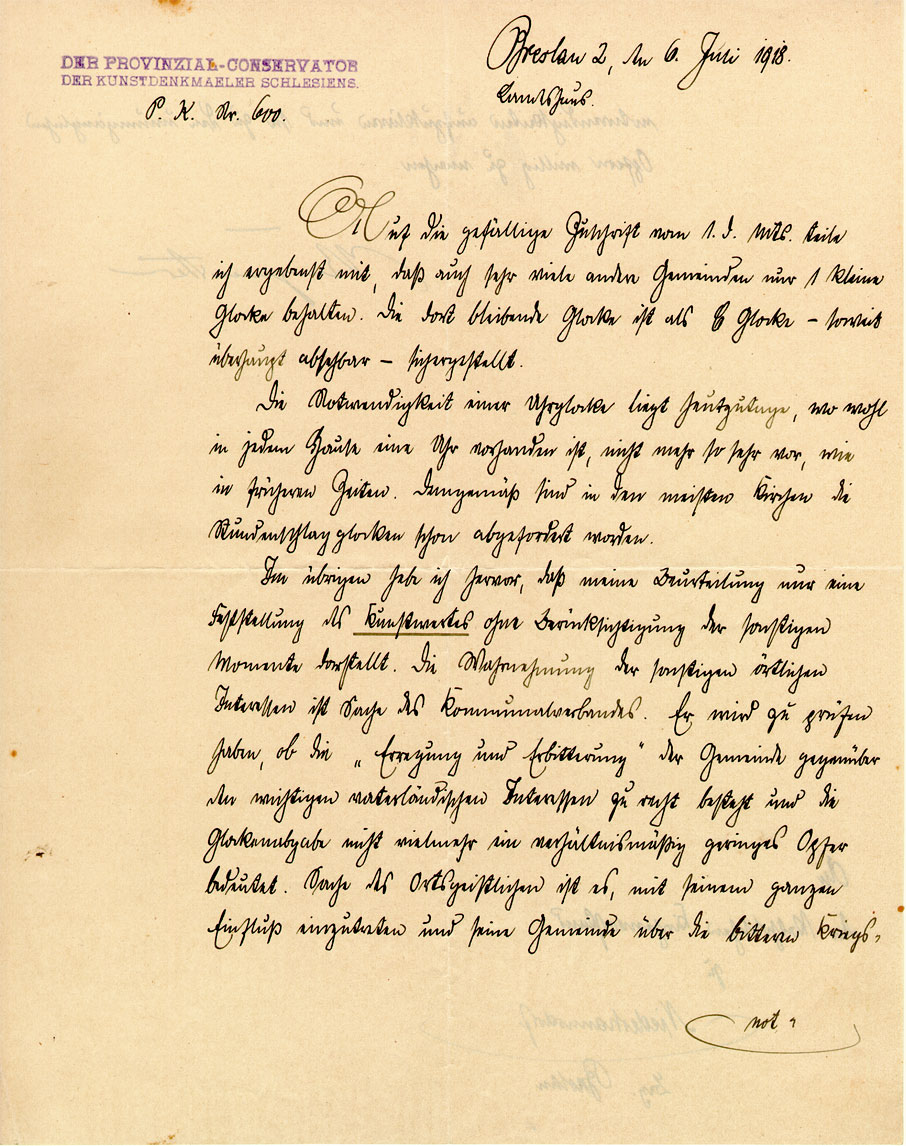 DER PROVINZIAL-CONSERVATOR
DER KUNSTDENKMAELER SCHLESIENS.
P. K. Nr. 600.
Breslau 2, den 6. Juli 1918.
Landshaus.
Auf die gefällige Zuschrift vom 1. d. Mts. teile
ich ergebenst mit, daß auch sehr viele andere Gemeinden nur 1 kleine
Glocke behalten. Die dort bleibende Glocke ist als B Glocke – soweit
überhaupt absehbar – sichergestellt.
Die Notwendigkeit einer Uhrglocke liegt heutzutage, wo wohl
in jedem Hause eine Uhr vorhanden ist, nicht mehr so sehr vor, wie
in früheren Zeiten. Demgemäß sind in den meisten Kirchen die
Stundenschlagglocken schon abgefordert worden.
Im übrigen hebe ich hervor, daß meine Beurteilung nur eine
Feststellung des Kunstwertes ohne Berücksichtigung der sonstigen
Momente darstellt. Die Wahrnehmung der sonstigen örtlichen
Interessen ist Sache des Kommunalverbandes. Er wird zu prüfen
haben, ob die „Erregung und Erbitterung" der Gemeinde gegenüber
den wichtigen vaterländischen Interessen zu recht besteht und die
Glockenabgabe nicht vielmehr ein verhältnismäßig geringes Opfer
bedeutet. Sache des Ortsgeistlichen ist es, mit seinem ganzen
Einfluß einzutreten und seine Gemeinde über die bittern Kriegs-
not-